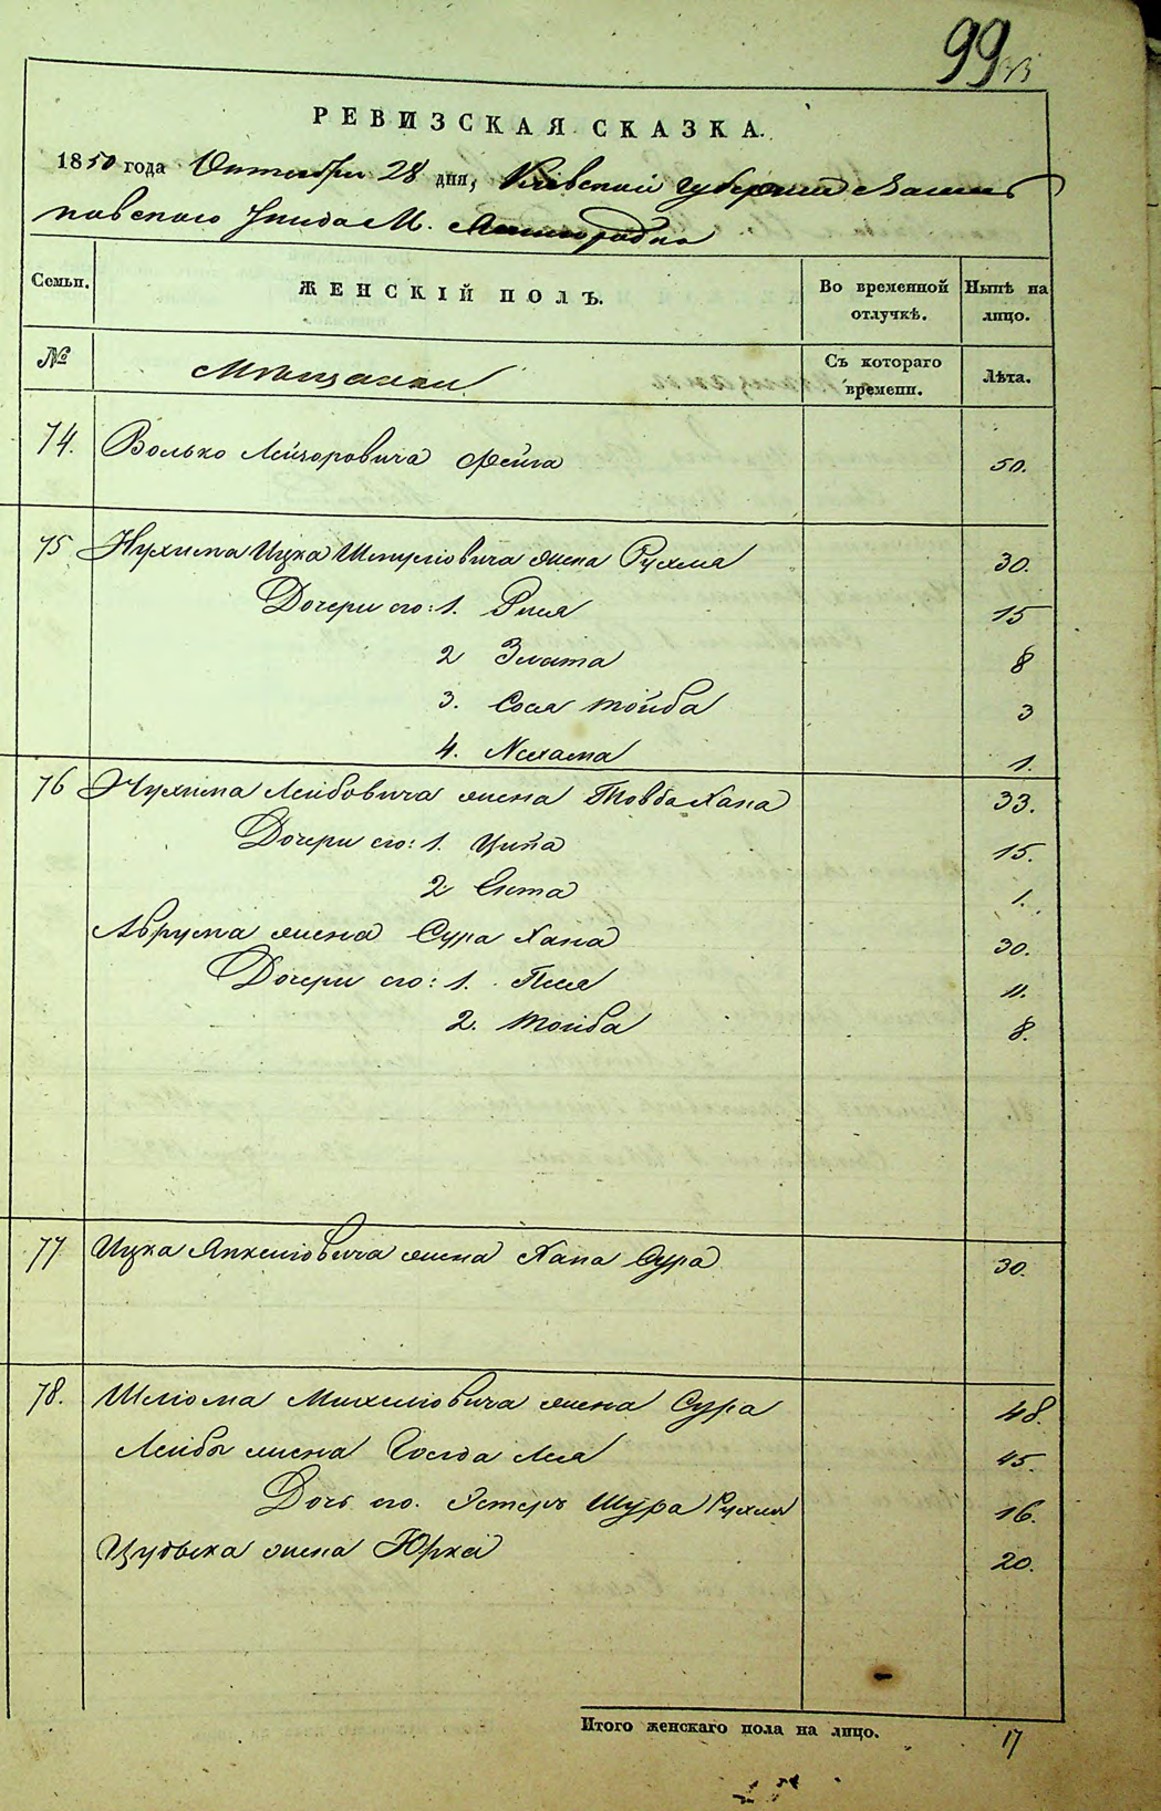 99
РЕВИЗСКАЯ СКАЗКА.
1850 года Октября 28 дня, Кіевской губерніи Василь
ковскаго уѣзда М.
Семьи. ЖЕНСКІЙ ПОЛЪ. Во временной отлучкѣ. Нынѣ на лицо.
№ Мѣщанки Съ котораго времени. Лѣта.
74. Волько Лейзоровича Фейга 50.
75 Нухима Ицка Шмуліовича жена Рухля 30.
Дочери его: 1. Рися 15
2 Злата 8
3. Сося Тойба 3
4. Нехама 1.
76 Нухима Лейбовича жена Товба Хана 33.
Дочери его: 1. Ципа 15.
2 Ента 1.
Аврума жена Сура Хана 30.
Дочери его: 1. Песя 11.
2. Тойба 8.
77 Ицка Янкеліовича жена Хана Сура 30.
78. Шліома Михеліовича жена Сура 48.
Лейбы жена Голда Лея 45.
Дочь его. Эстеръ Шура Рухля 16.
жена 20.
Итого женскаго пола на лицо. 17